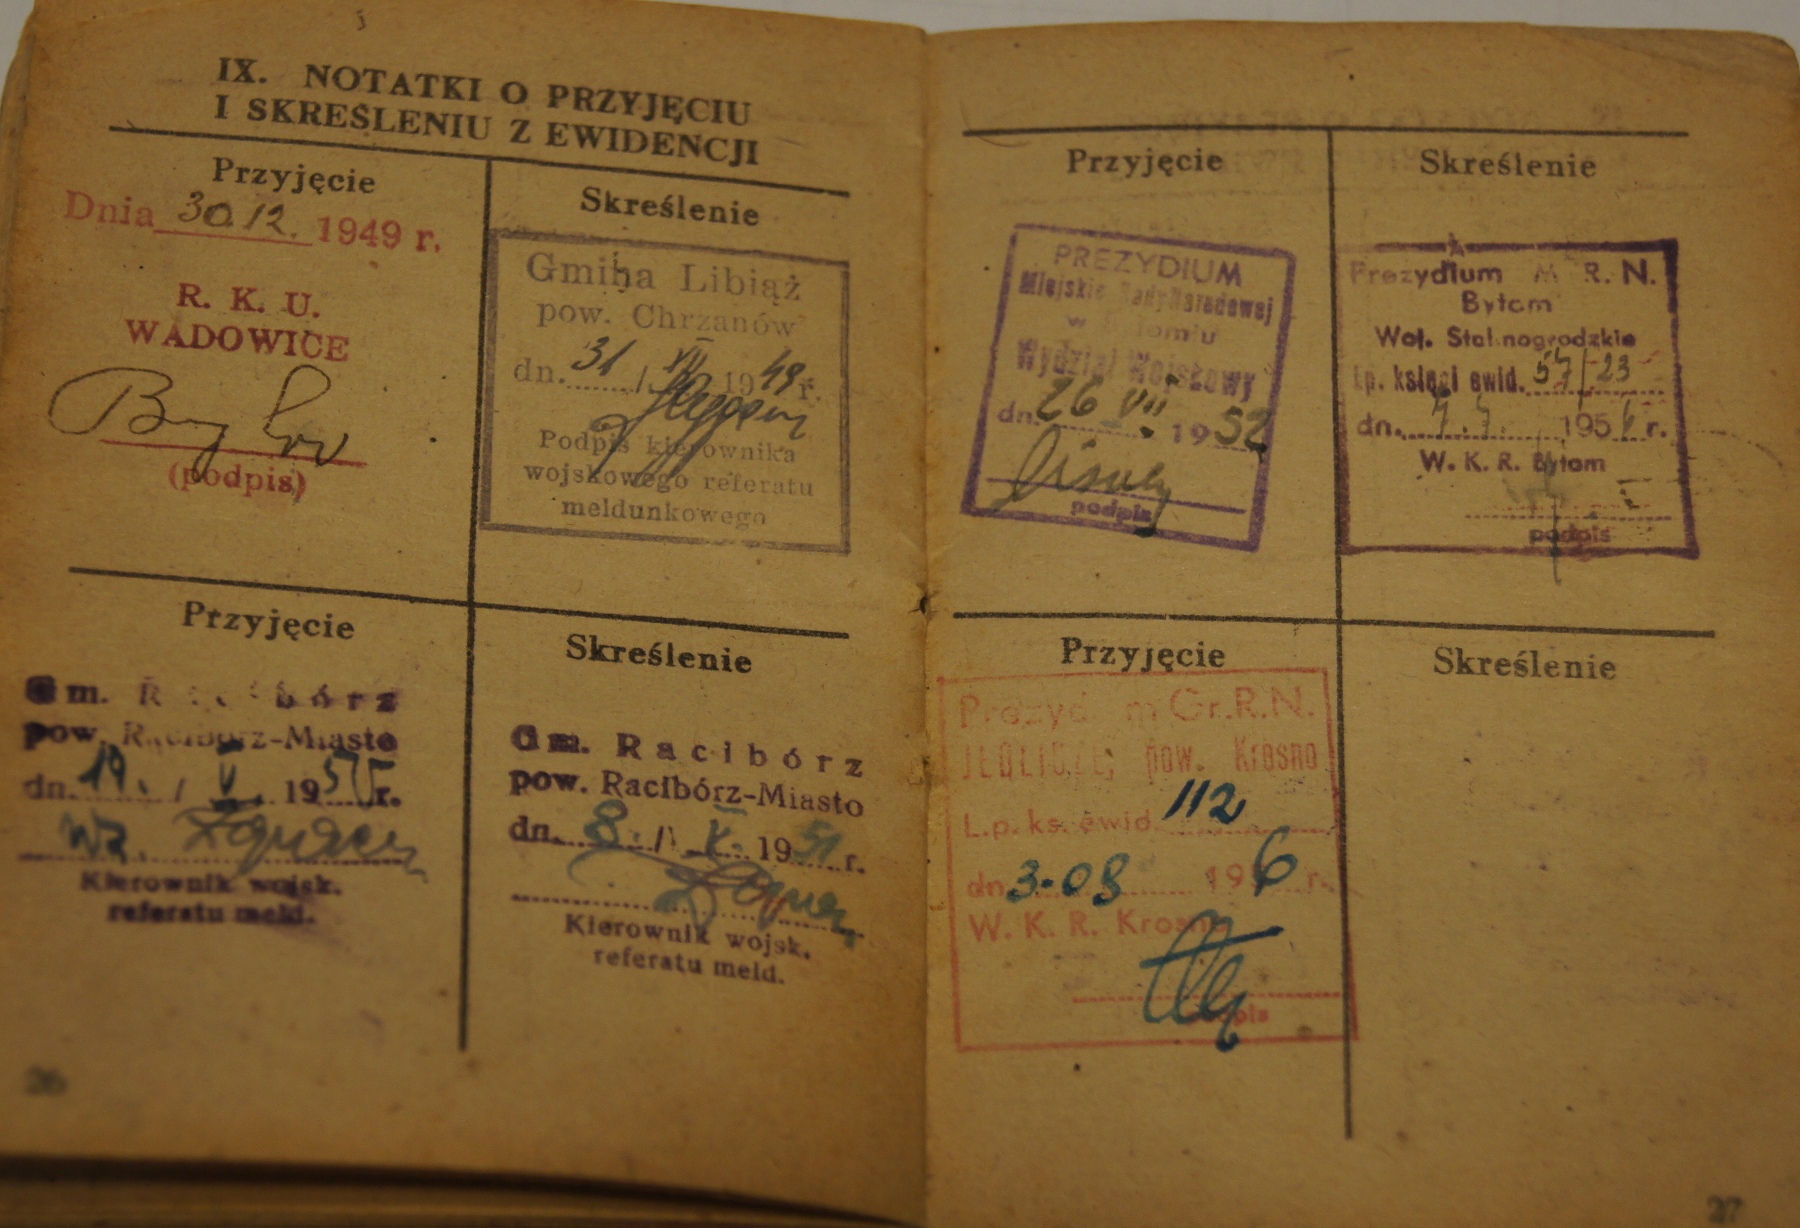 IX. NOTATKI O PRZYJĘCIU
I SKREŚLENIU Z EWIDENCJI
Przyjęcie
Dnia 30.12. 1949 r.
R. K. U.
WADOWICE
(podpis)
Skreślenie
Gmina Libiąż
pow. Chrzanów
dn. 31 / XII 1949 r.
Podpis kierownika
wojskowego referatu
meldunkowego
Przyjęcie
Gm. Racibórz
pow. Racibórz-Miasto
dn. 19. / V. 195 r.
wz.
Kierownik wojsk.
referatu meld.
Skreślenie
Gm. Racibórz
pow. Racibórz-Miasto
dn. 8. / X. 1951 r.
Kierownik wojsk.
referatu meld.
26
Przyjęcie
PREZYDIUM
Miejskie Rady Narodowej
w Bytomiu
Wydział Wojskowy
dn. 26 VII. 1952
podpis
Skreślenie
Prezydium M. R. N.
Bytom
Woj. Stalinogrodzkie
Lp. księgi ewid. 57/23
dn. 195 r.
W. K. R. Bytom
podpis
Przyjęcie
Prezydium Gr. R. N.
JEDLICZE, pow. Krosno
L.p. ks. ewid. 112
dn. 3-08 196 r.
W. K. R. Krosno
podpis
Skreślenie
27